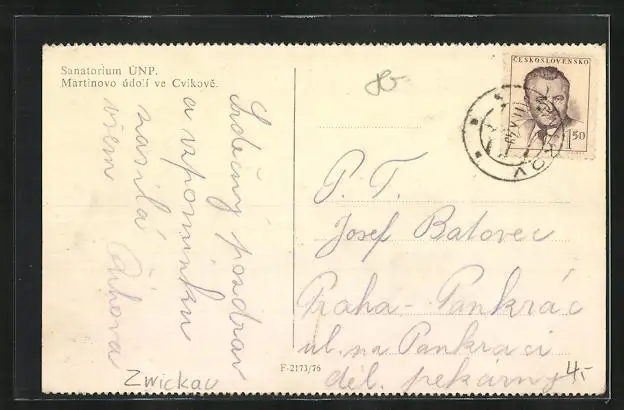 Sanatorium ÚNP.
Martinovo údolí ve Cvikově.
Srdečný pozdrav
a vzpomínku
zasílá
všem
Zwickau
F-2173/76
ČESKOSLOVENSKO
1.50
P. T.
Josef Batovec
Praha - Pankrác
ul. na Pankraci
děl. pekárny
4.-